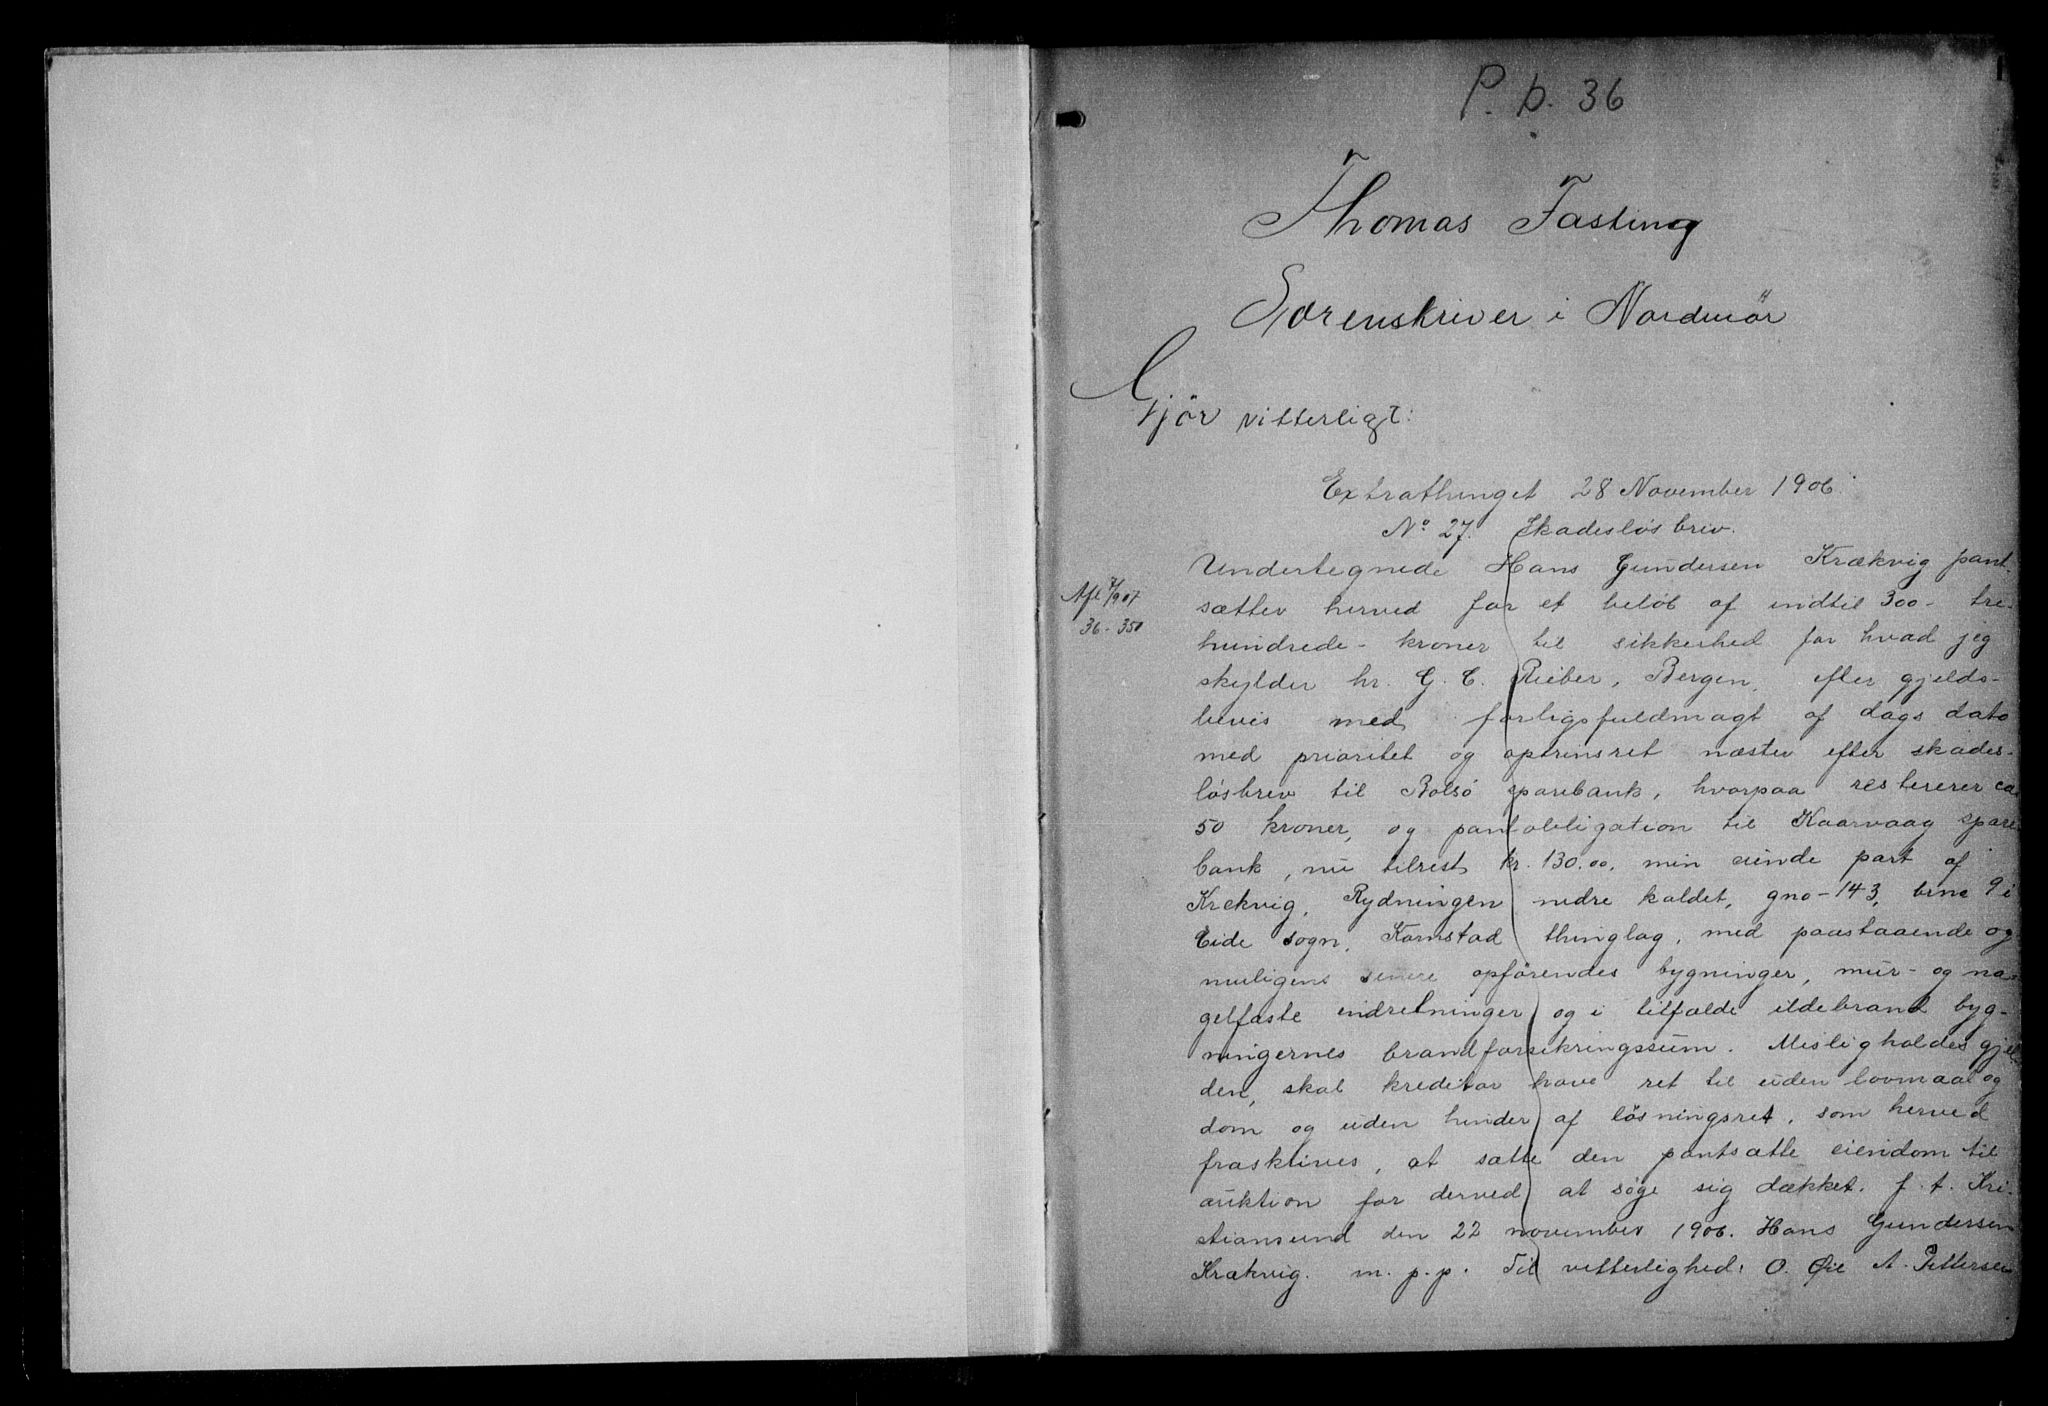 P. b. 36
1
Thomas Fasting
Sorenskriver i Nordmör
Gjör vitterligt:
Extrathinget 28 November 1906.
No 27. Skadesløsbrev.
Undertegnede Hans Gundersen Krækvig pant-
sætter herved for et beløb af indtil 300 - tre-
hundrede - kroner til sikkerhed for hvad jeg
skylder hr. G. C. Rieber, Bergen, efter gjelds-
bevis med forligsfuldmagt af dags dato
med prioritet og optrinsret næster efter skades-
løsbrev til Bolsö sparebank, hvorpaa resterer ca
50 kroner, og pantobligation til Kaarvaag spare
bank, nu tilrest kr. 130.00, min eiende part af
Krekvig, Rydningen nedre kaldet, gno - 143, brno 9 i
Eide sogn, Kornstad thinglag, med paastaaende og
muligens senere opførendes bygninger, mur- og na-
gelfaste indretninger og i tilfælde ildebrand byg-
ningernes brandforsikringssum. Misligholdes gjel-
den, skal kreditor have ret til uden lovmaal og
dom og uden hinder af løsningsret, som herved
fraskrives, at sætte den pantsatte eiendom til
auktion for derved at søge sig dækket. f. t. Kri-
stiansund den 22 november 1906. Hans Gundersen
Krækvig. m. p. p. Til vitterlighed: O. Øie A. Pettersen
Afl 7/907
36 - 351